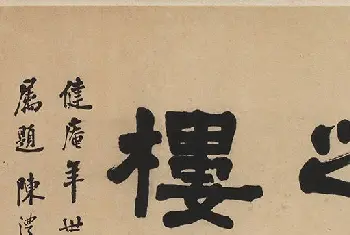 之樓
健庵年世
屬題 陳澧